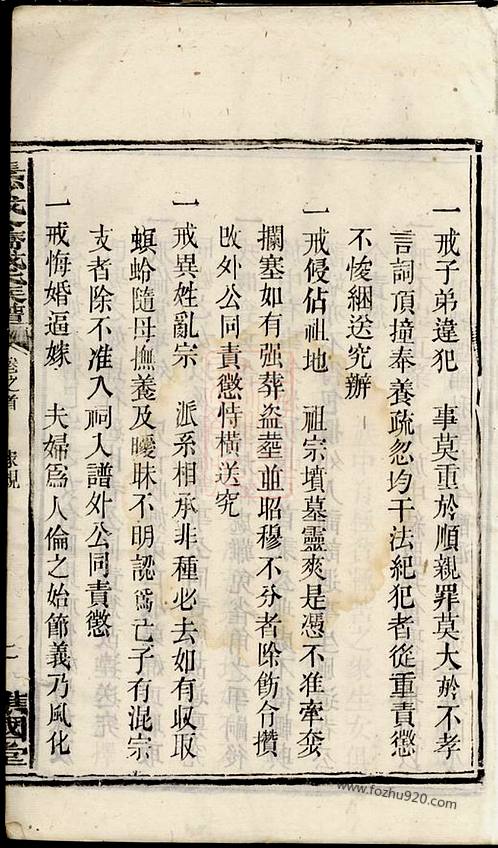 一戒子弟違犯　事莫重於順親罪莫大於不孝
言詞頂撞奉養疏忽均干法紀犯者從重責懲
不悛綑送究辦
一戒侵佔祖地　祖宗墳墓靈爽是憑不准牽套
攔塞如有强葬盜塟並昭穆不分者除飭令攢
改外公同責懲恃橫送究
一戒異姓亂宗　派系相承非種必去如有収取
螟蛉隨母撫養及曖昧不明認爲己子有混宗
支者除不准入祠入譜外公同責懲
一戒悔婚逼嫁　夫婦爲人倫之始節義乃風化
族譜
卷之首
家規
二
國堂
www.fozhu920.com